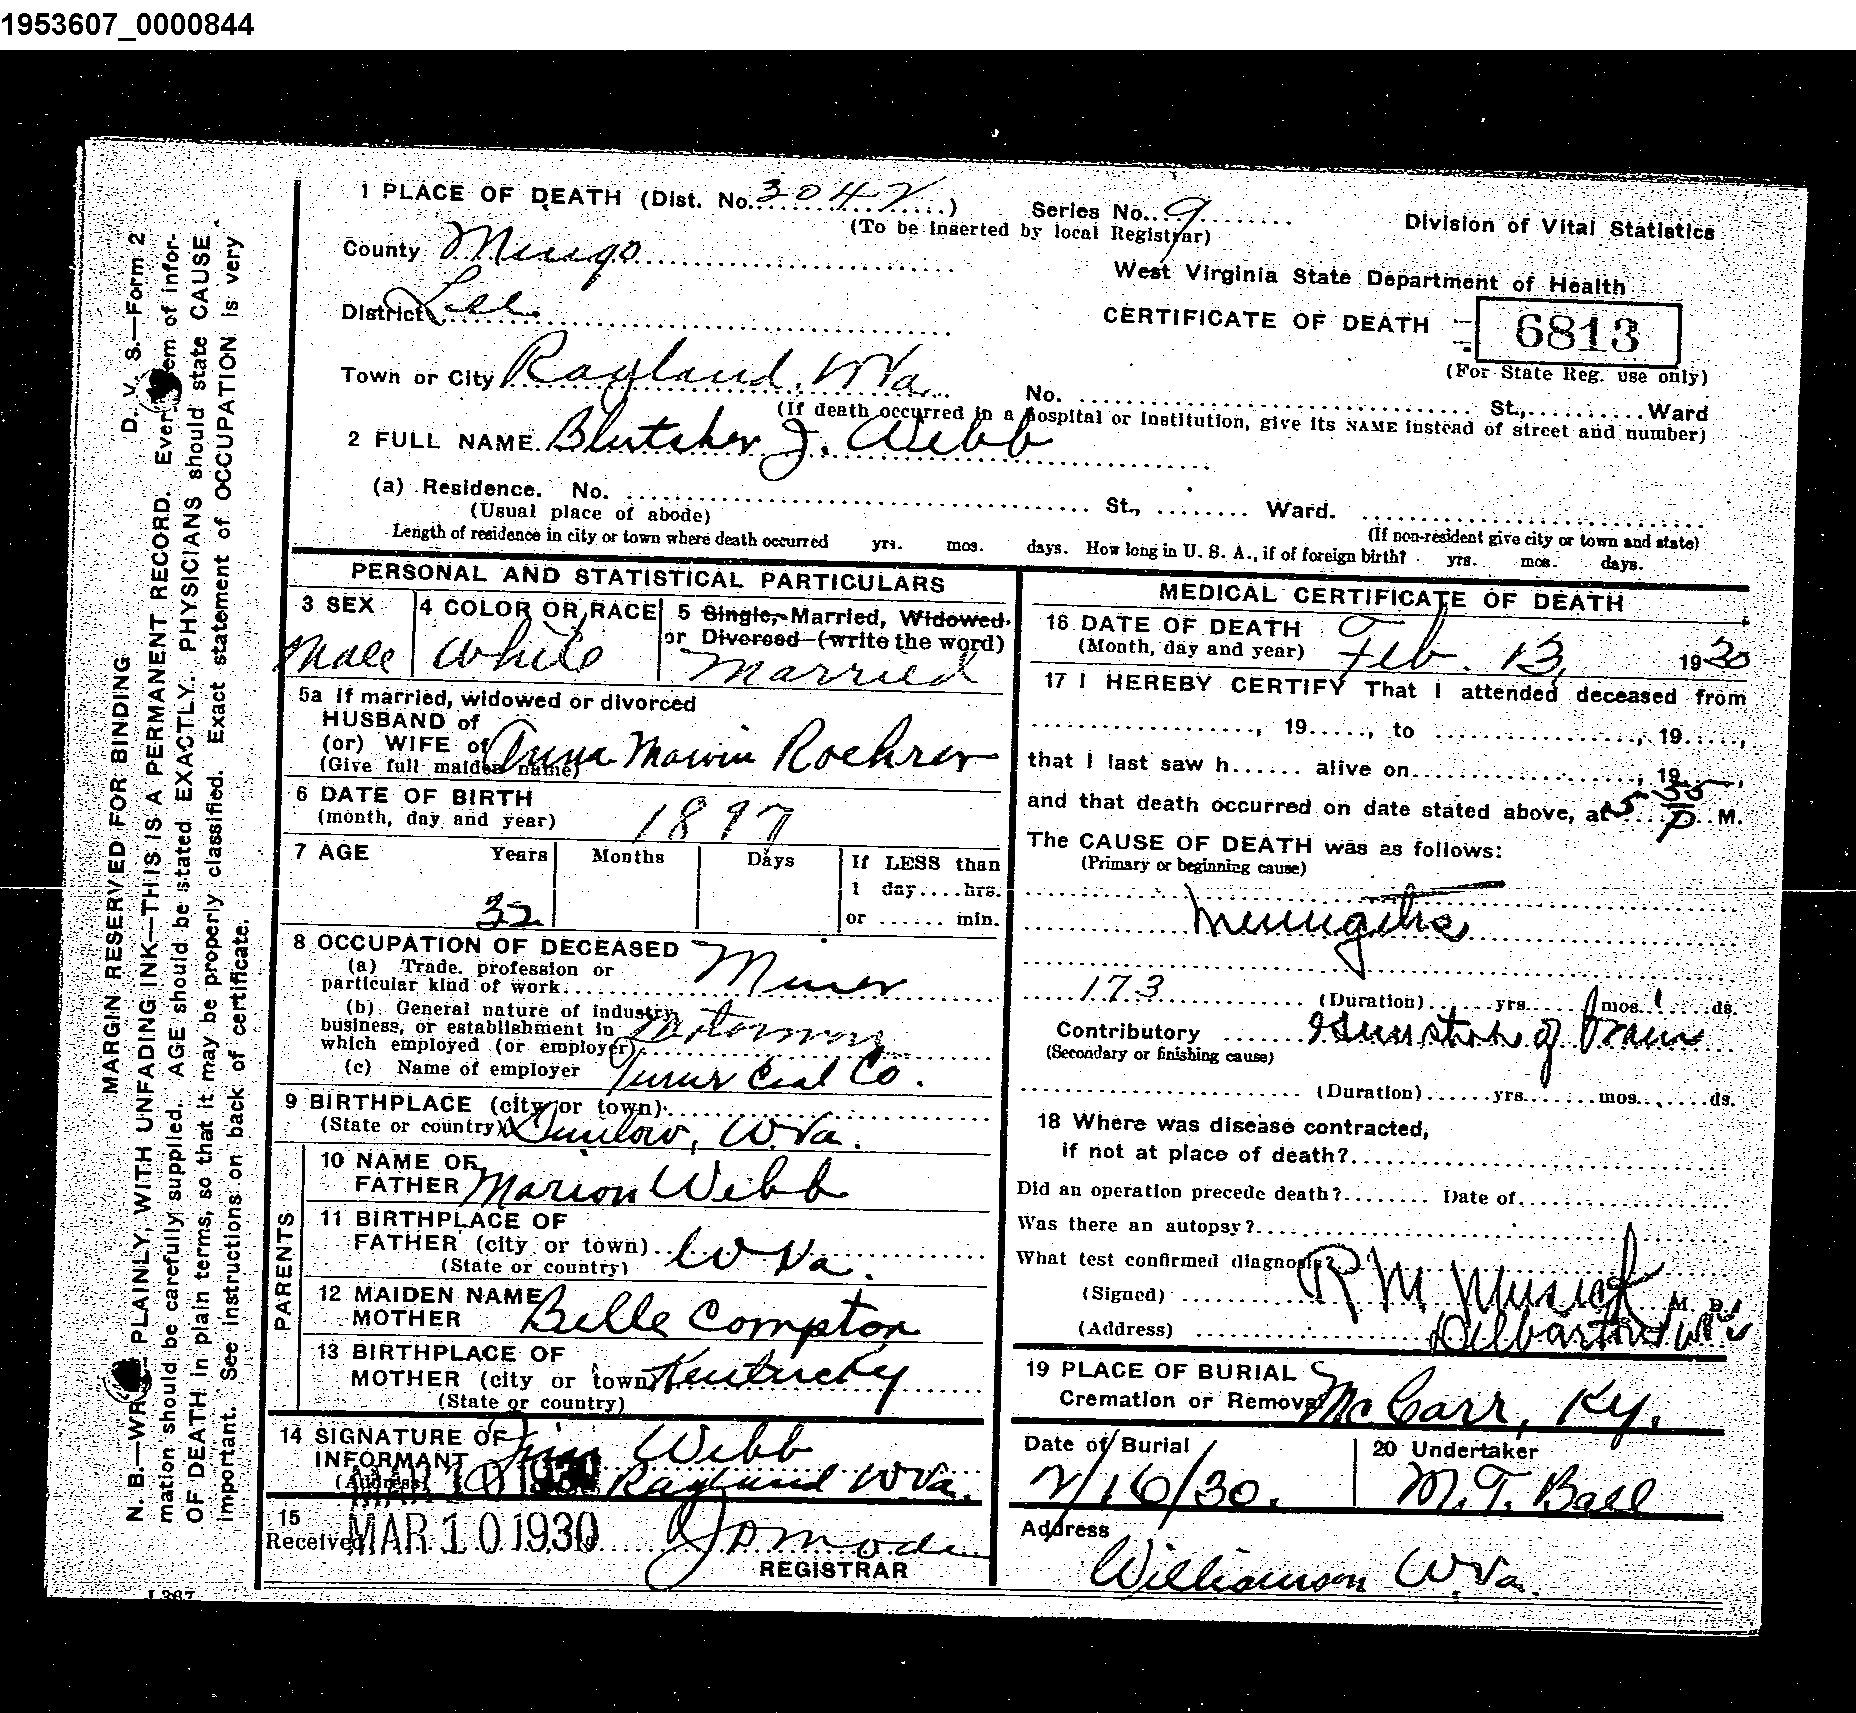 1953607_0000844
1 PLACE OF DEATH (Dist. No. 3042)
Series No. 9
(To be inserted by local Registrar)
Division of Vital Statistics
County Mingo
West Virginia State Department of Health
District Lee.
CERTIFICATE OF DEATH
6813
(For State Reg. use only)
Town or City Ragland, W Va.
No. St., Ward
(If death occurred in a hospital or institution, give its NAME instead of street and number)
2 FULL NAME J. Webb
(a) Residence. No. St., Ward.
(Usual place of abode)
(If non-resident give city or town and state)
Length of residence in city or town where death occurred yrs. mos. days. How long in U. S. A., if of foreign birth? yrs. mos. days.
PERSONAL AND STATISTICAL PARTICULARS
3 SEX
Male
4 COLOR OR RACE
White
5 Single, Married, Widowed
or Divorced (write the word)
Married
5a If married, widowed or divorced
HUSBAND of
(or) WIFE of Anna
(Give full maiden name)
6 DATE OF BIRTH
(month, day and year) 1897
7 AGE Years Months Days If LESS than
1 day....hrs.
or ...... min.
32
8 OCCUPATION OF DECEASED
(a) Trade, profession or
particular kind of work Miner
(b) General nature of industry,
business, or establishment in
which employed (or employer) Motorman
(c) Name of employer Coal Co.
9 BIRTHPLACE (city or town)
(State or country) Dunlow, W.Va.
PARENTS
10 NAME OF
FATHER Marion Webb
11 BIRTHPLACE OF
FATHER (city or town) W Va.
(State or country)
12 MAIDEN NAME
MOTHER Belle Compton
13 BIRTHPLACE OF
MOTHER (city or town) Kentucky
(State or country)
14 SIGNATURE OF
INFORMANT Webb
(Address) Ragland W Va.
MAR 10 1930
15
Received MAR 10 1930
REGISTRAR
MEDICAL CERTIFICATE OF DEATH
16 DATE OF DEATH
(Month, day and year) Feb. 13, 1930
17 I HEREBY CERTIFY That I attended deceased from
, 19....., to , 19.....,
that I last saw h...... alive on , 19
and that death occurred on date stated above, at 5 35 P M.
The CAUSE OF DEATH was as follows:
(Primary or beginning cause)
Meningitis
173 (Duration) yrs. mos. ds.
Contributory Gunshot of brain
(Secondary or finishing cause)
(Duration) yrs. mos. ds.
18 Where was disease contracted,
if not at place of death?
Did an operation precede death? Date of
Was there an autopsy?
What test confirmed diagnosis?
(Signed) R M Musick M. D.
(Address) Delbarton W Va
19 PLACE OF BURIAL
Cremation or Removal McCarr, Ky.
Date of Burial
2/16/30.
20 Undertaker
M.T. Ball
Address
Williamson W.Va.
D. V. S.—Form 2
MARGIN RESERVED FOR BINDING
N. B.—WRITE PLAINLY, WITH UNFADING INK—THIS IS A PERMANENT RECORD. Every item of infor-
mation should be carefully supplied. AGE should be stated EXACTLY. PHYSICIANS should state CAUSE
OF DEATH in plain terms, so that it may be properly classified. Exact statement of OCCUPATION is very
important. See instructions on back of certificate.